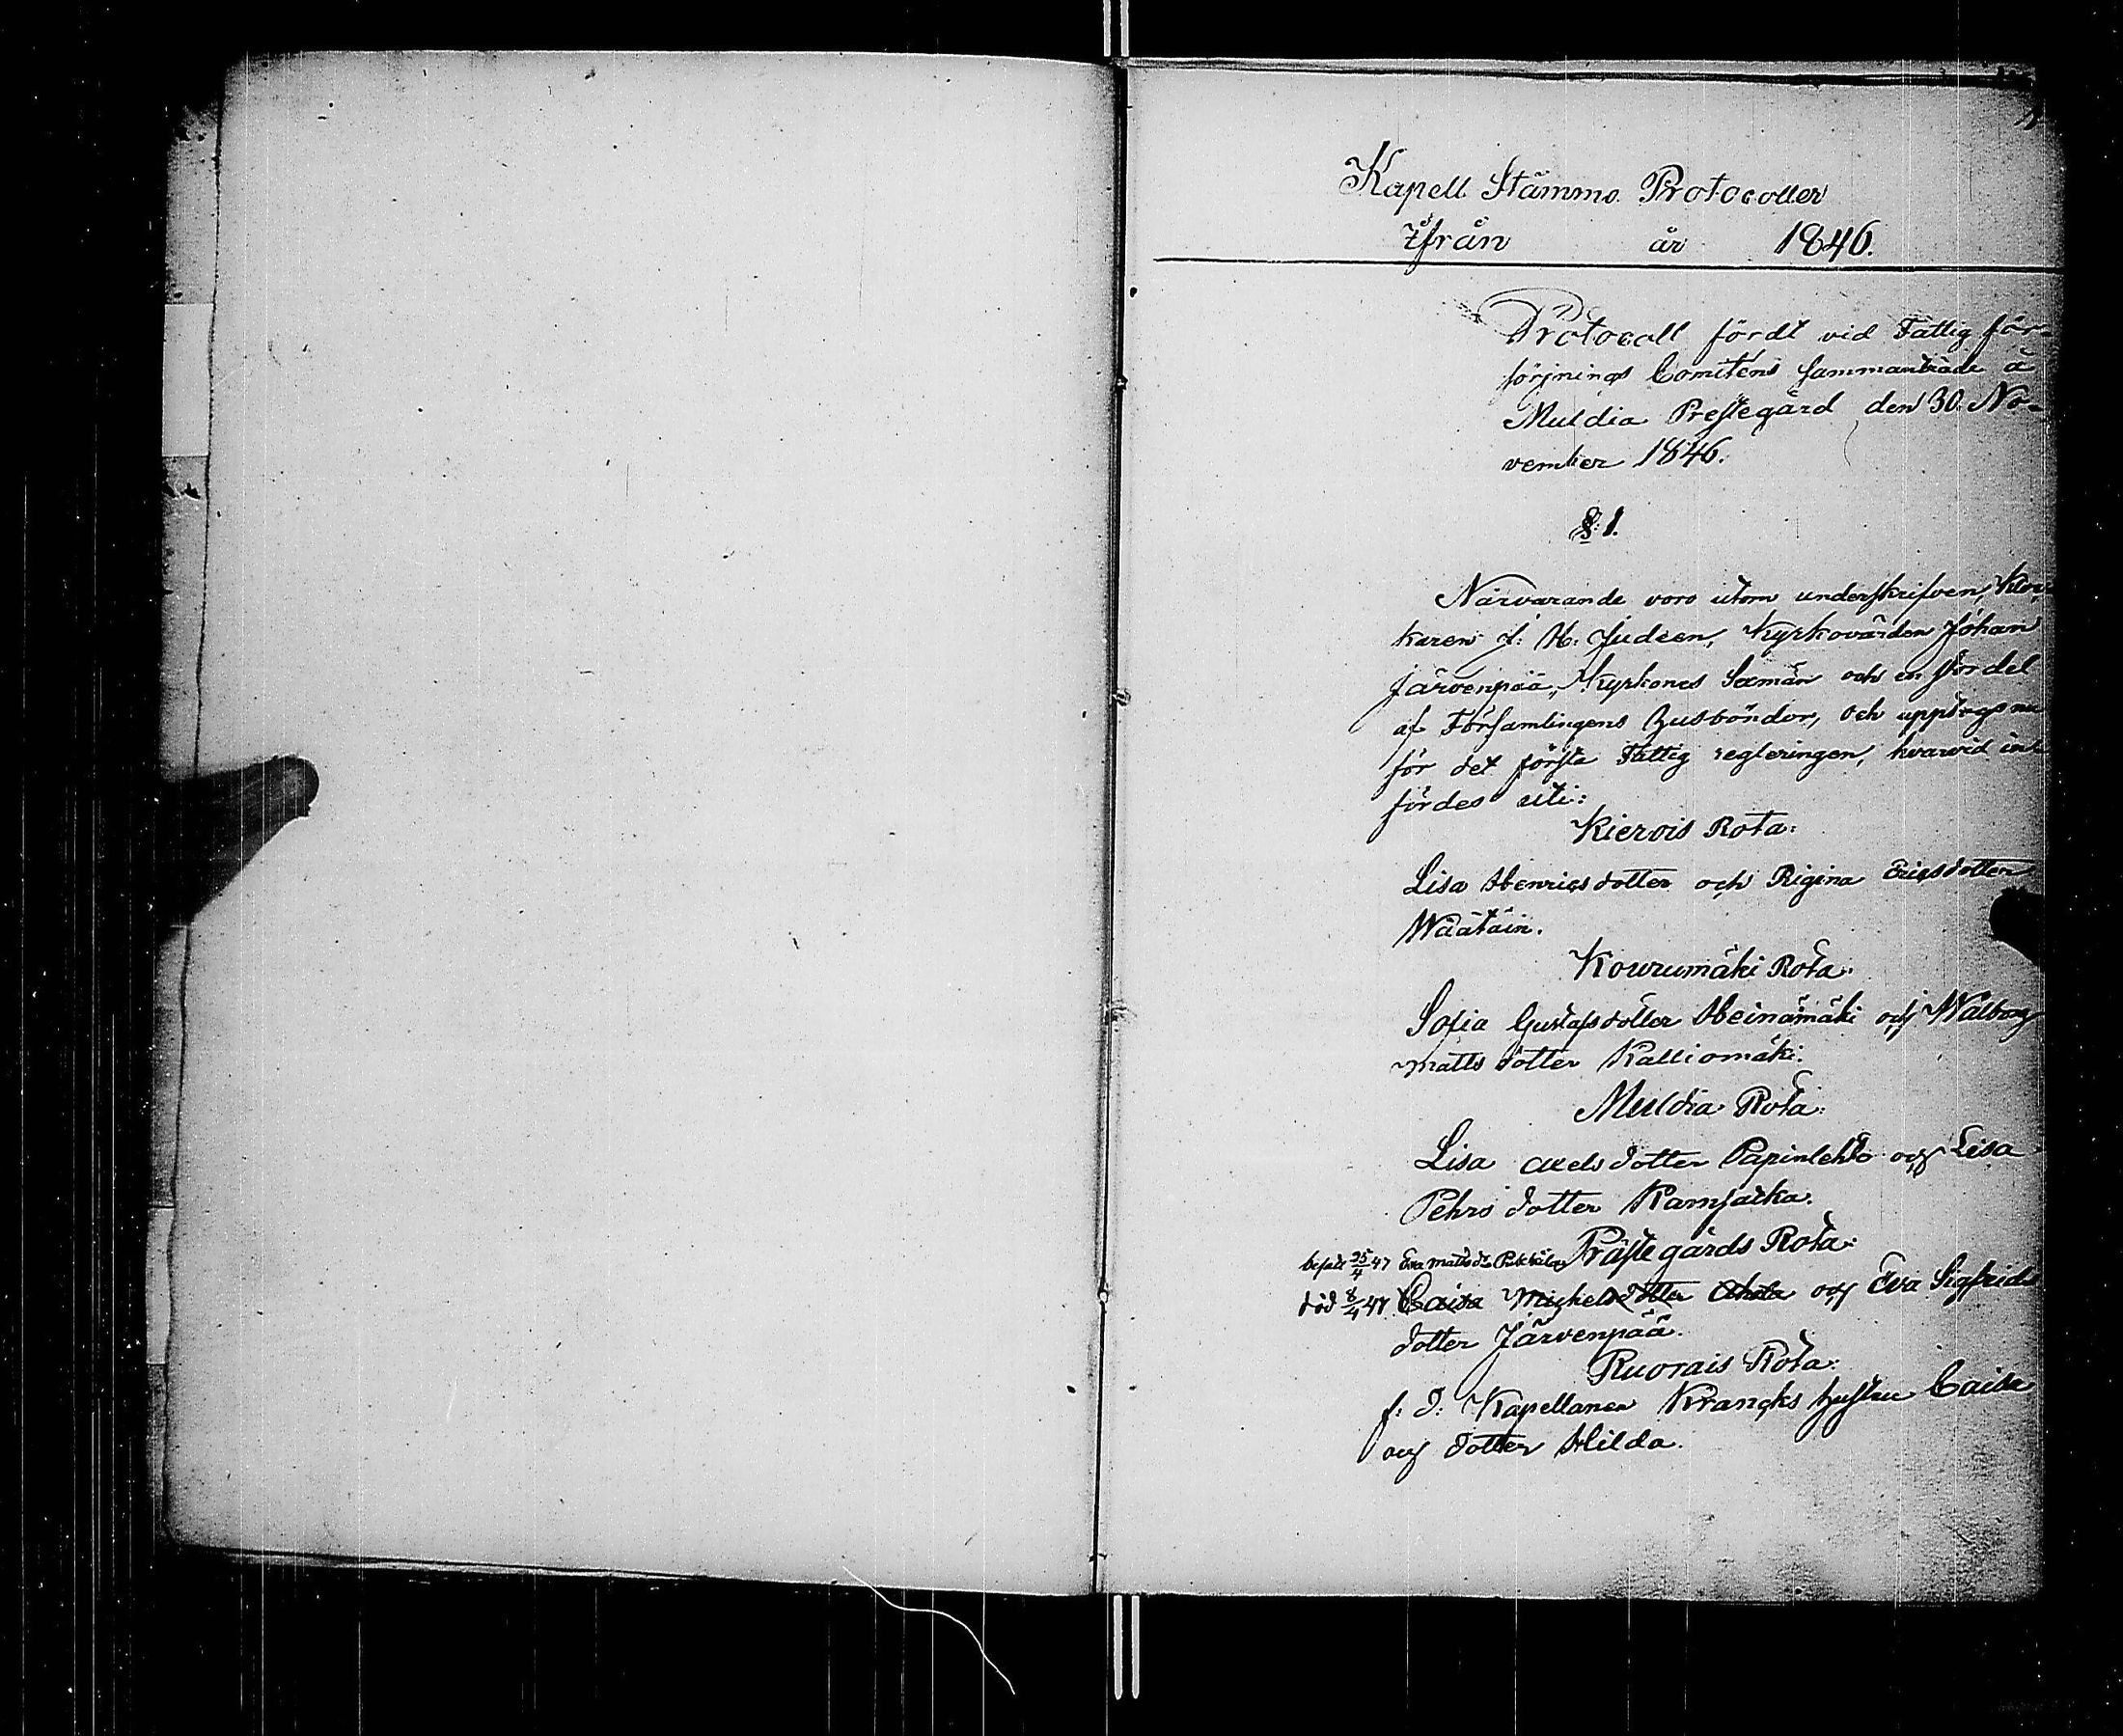 Kapell Stämmo Protocoller
ifrån år 1846.
Protocoll fördt vid Fattig för-
sörjnings Comiténs sammanträde å
Muldia Prestegård den 30. No-
vember 1846.
§: 1.
Närvarande voro utom underskrifven, Kloc-
karen J: H: Judeen, Kyrkovärden Johan
Järvenpää, Kyrkones Sexmän och en stor del
af Församlingens Husbönder, och upptogs nu
för det första Fattig regleringen, hvarvid in-
fördes uti:
Kierois Rota:
Lisa Henricsdotter och Rigina Ericsdotter
Wäätäin.
Kourumäki Rota:
Sofia Gustafsdotter Heinämäki och Walborg
Matts dotter Kalliomäki.
Muldia Rota:
Lisa Axels dotter Papinlehto och Lisa
Pehrs dotter Kamsatka.
Prästegårds Rota:
25/4 47 Eva Matts dr
död 8/4 47 Caisa Mickelsdotter Ahola och Eva Sigfrids
dotter Järvenpää.
Ruorais Rota:
f: d: Kapellanen Krancks hustru Caisa
och dotter Hilda.